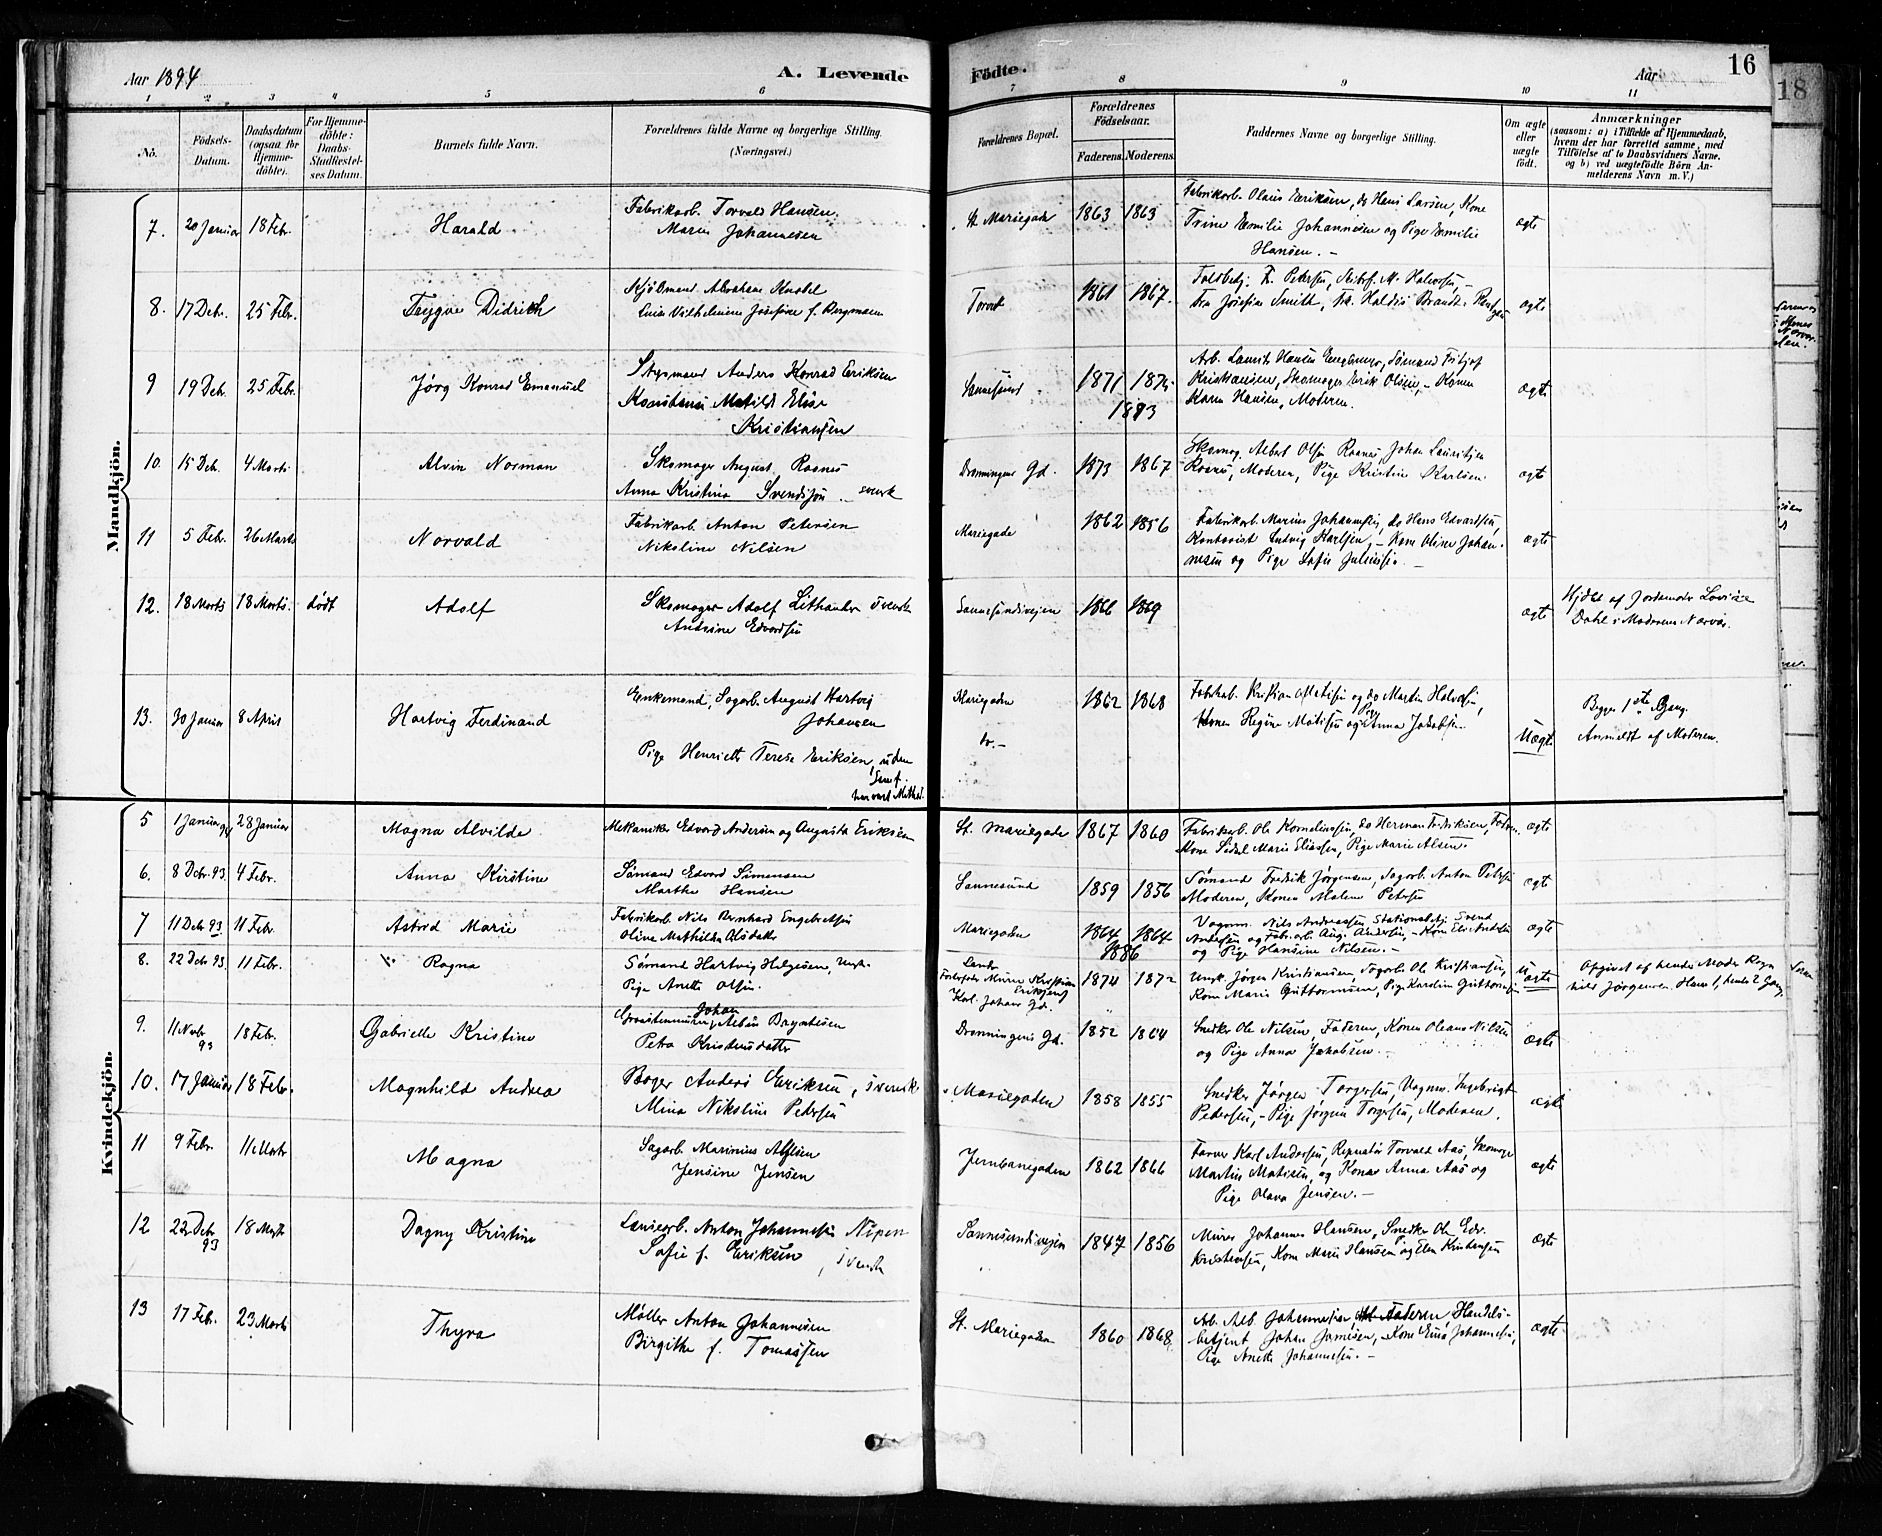 Aar 1894
A. Levende
Födte.
Aar
16
18
1 2 3 4 5 6 7 8 9 10 11
No.
Födsels-
Datum.
Daabsdatum
(ogsaa for
Hjemme-
döbte).
For Hjemme-
döbte:
Daabs-
Stadfæstel-
ses Datum.
Barnets fulde Navn.
Forældrenes fulde Navne og borgerlige Stilling.
(Næringsvei.)
Forældrenes Bopæl.
Forældrenes
Födselsaar.
Faderens.
Moderens.
Faddernes Navne og borgerlige Stilling.
Om ægte
eller
uægte
født.
Anmærkninger
(saasom: a) i Tilfælde af Hjemmedaab,
hvem der har forrettet samme, med
Tilföielse af to Daabsvidners Navne.
og b) ved uægtefödte Börn An-
melderens Navn m. V.)
Mandkjön.
7. 20 Januar 18 Febr. Harald
Fabrikarb. Torvald Hansen.
Maren Johannesen
St. Mariegade 1863 1863
Fabrikarb. Olaus Eriksen, do Hans Larsen, Kone
Trine Emilie Johannesen og Pige Emilie
Hansen. –
ægte
8. 17 Debr. 25 Febr. Trygve Didrik
Kjöbmand Abraham
Vilhelmine Josefine f. Bergmann
Torvet 1861 1867.
Petersen, M. Halvorsen, –
Fru Josefine Smitt, Brandt.
ægte
9 19 Debr. 25 Febr. Jørg Konrad Emanuel
Anders Konrad Eriksen
Konstanse Matilde Elise
Kristiansen
1871 187
1893
Arb. Laurits Hansen Engeberget, Sømand Fritjof
Kristiansen, Skomager Erik Olsen, – Konen
Karen Hansen, Moderen.
ægte
10. 15 Debr. 4 Marts Alvin Norman
Skomager August Raanes
Anna Kristina Svendsen .. svensk
Dronningens Gd. 1873 1867
Skomag. Albert Olsen Raanes, Johan Lauritzen
Raanes, Moderen, Pige Kristine Karlsen.
ægte
11 5 Febr. 26 Marts Norvald
Fabrikarb. Anton Petersen
Nikoline Nilsen
Mariegade 1862 1856
Fabrikarb. Marius Johannesen, do Hans Edvardsen,
Kontorist Ludvig Karlsen, – Kone Oline Johan-
nesen og Pige Sofie Juliussen. –
ægte
12. 18 Marts 18 Marts. dødt Adolf
Skomager Adolf Lithander svensk
Andrine Edvardsen
Sannesundsveien 1866 1869
ægte
Hjdbt af Jordemoder Lovise
Dahl i Moderens Nærvær.
13. 30 Januar 8 April Hartvig Ferdinand
Enkemand, Sagarb. August Hartvig
Johansen
Pige Henriette Terese Eriksen, uden
Mariegaden 1862 1868
do. –
Fabrikarb. Kristian Matisen og do Martin Halvorsen,
Konen Regine Matisen og Pige Anna Jakobsen.
Uægte
Begges 1ste Gang.
Anmeldt af Moderen.
Kvindekjön.
5 1 Januar 94 28 Januar Magna Alvilde
Mekaniker Edvard Andersen og Augusta Eriksen
St. Mariegade 1867 1860
Fabrikarb. Ole Kornelinssen, do Herman Fredriksen, Faderen
Kone Sidsel Marie Eliassen, Pige Marie Alsen.
ægte
6. 8 Debr. 93. 4 Febr. Anna Kirstine
Sømand Edvard Simensen
Marthe Hansen
Sannesund 1859 1856
Sømand Fredrik Jørgensen, Sagarb. Anton Petersen
Moderen, Konen Malene Petersen
ægte
7 11 Debr 93 11 Febr. Astrid Marie
Fabrikarb. Nils Bernhard Engebretsen
Oline Mathilde Olsdatter
Mariegaden 1864 1864
1886
Vognm. Nils Andreassen, Svend
Andersen og Fabr. arb. Aug. Andersen, – Kone Andersen
og Pige Hansine Nilsen. –
ægte
8. 22 Debr 93. 11 Febr. Ragna
Sømand Hartvig Helgesen, Ungk.
Pige Anette Olsen.
Kristian
Eriksens
Karl Johans Gd.
1874 1872
Ungk. Jørgen Kristiansen, Sagarb. Ole Kristiansen,
Kone Marie Guttormsen, Pige Karoline Guttormsen
Uægte
Opgivet af hendes Moder
Jørgensen Hans 1, hendes 2 Gang.
9. 11 Novbr 93 18 Febr. Gabrielle Kristine
Johan
Graastensmurer, Albin Bryntesen
Petra Kristensdatter
Dronningens Gd. 1852 1864
Snedker Ole Nilsen, Faderen, Konen Oleane Nilsen
og Pige Anna Jakobsen. –
ægte
10. 17 Januar 18 Febr. Magnhild Andrea
Bager Anders Eriksen, svensk
Mina Nikoline Petersen
Mariegaden 1858 1855
Snedker Jørgen Torgersen, Vognm. Ingebrigt
Pedersen, – Pige Jørgine Torgersen, Moderen.
ægte
11 9 Febr. 11 Marts Magna
Sagarb. Marinius Alfsen
Jensine Jensen
Jernbanegaden 1862 1866
Farver Karl Andersen, Repratør Torvald Aas, Skomager
Martin Matisen, og Konen Anna Aas og
Pige Olava Jensen. –
ægte
12 22 Debr 93 18 Marts Dagny Kristine
Anton Johannesen Nipen
Sofie f. Eriksen, svensk
Sannesundsveien 1847 1856
Murer Johannes Hansen, Snedker Ole Edv.
Kristensen, Kone Marie Hansen og Elen Kristensen
ægte
13 17 Febr. 23 Marts Thyra
Møller Anton Johannesen
Birgithe f. Tomassen
St. Mariegaden 1860 1868
Arb. Alb. Johannesen, Faderen, Handels-
betjent Johan Jamesen, – Kone Elina Johannesen,
Pige Anette Johannesen. –
ægte